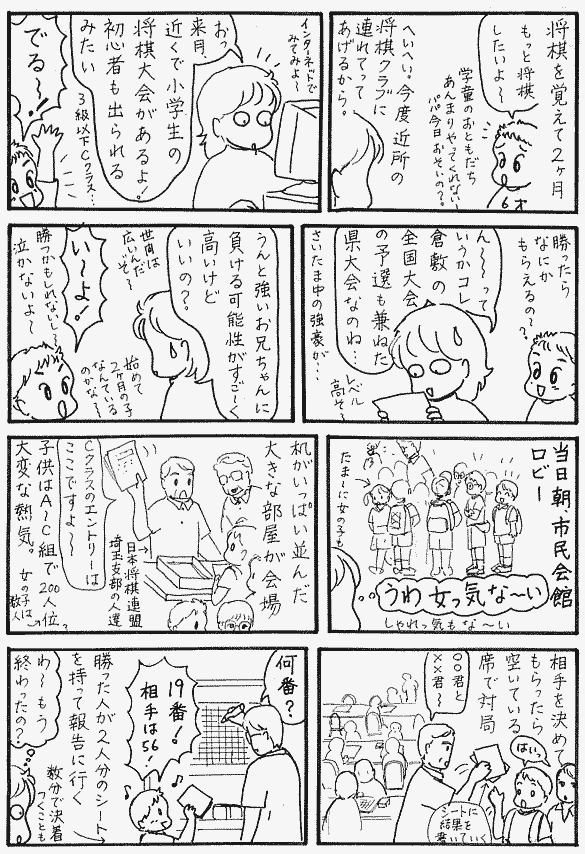 将棋を覚えて2ヶ月
もっと将棋
したいよ〜
学童のおともだち
あんまりやってくれない〜
パパ今日おそいの?。
6才
へいへい。今度近所の
将棋クラブに
連れてって
あげるから。
インターネットで
みてみよ〜
おっ
来月、
近くで小学生の
将棋大会があるよ!
初心者も出られる
みたい
3級以下Cクラス…
でる〜!
勝ったら
なにか
もらえるの?
ん〜〜って
いうかコレ
倉敷の
全国大会
の予選も兼ねた
県大会なのね…
さいたま中の強豪が…
レベル
高そ〜
うんと強いお兄ちゃんに
負ける可能性がすご〜く
高いけど
いいの?。
世間は
広いんだ
ぞ〜
始めて
2ヶ月の子
なんている
のかな〜
い〜よ!
勝つかもしれないし〜
泣かないよ〜
当日朝、市民会館
ロビー
たま〜に女の子も
うわ女っ気な〜い
しゃれっ気もな〜い
机がいっぱい並んだ
大きな部屋が会場
日本将棋連盟
埼玉支部の人達
Cクラスのエントリーは
ここですよ〜
子供はA〜C組で200人位?
大変な熱気。
女の子は
数人
相手を決めて
もらったら
空いている
席で対局
○○君と
××君〜
はいっ
シートに
結果を
書いていく
何番?
19番!
相手は56!
勝った人が2人分のシート
を持って報告に行く
数分で決着
つくことも
わ〜もう
終わったの?